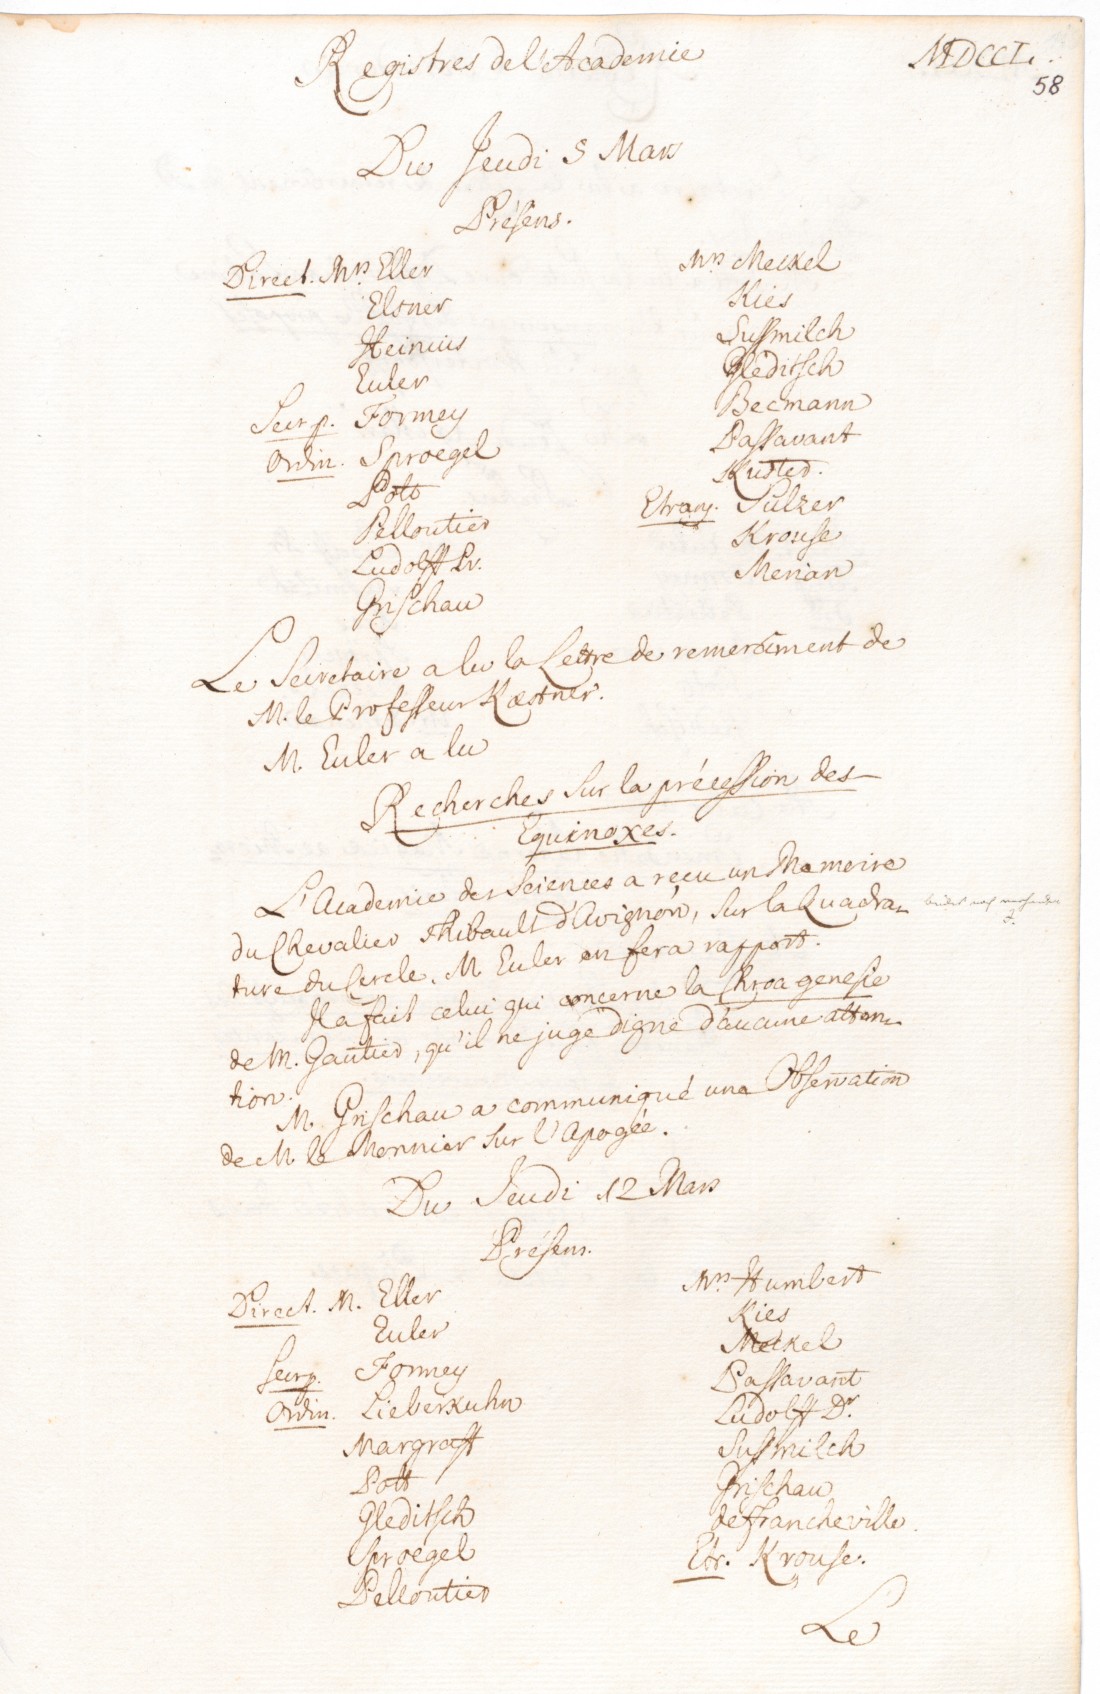 Registres de l'Academie
MDCCL.
58
Du Jeudi 5 Mars
Présens.
Direct. Mrs Eller
Elsner
Heinius
Euler
Secr. p. Formey
Ordin. Sproegel
Pott
Pelloutier
Ludolff Pr.
Grischau
Mrs Meckel
Kies
Sussmilch
Gleditsch
Becmann
Passavant
Kuster.
Etrang. Sulzer
Krouse
Merian
Le Secretaire a lu la Lettre de remerciment de
M. le Professeur Kæstner.
M. Euler a lu
Recherches sur la précession des
Equinoxes.
L'Academie des Sciences a reçu un Memoire
du Chevalier Thibault d'Avignon, sur la Quadra-
ture du Cercle. M. Euler en fera rapport.
Il a fait celui qui concerne la Chroa genesie
de M. Gautier, qu'il ne juge digne d'aucune atten-
tion.
M. Grischau a communiqué une Observation
de M. le Monnier sur l'Apogée.
Du Jeudi 12 Mars
Présens.
Direct. M. Eller
Euler
Secr. p. Formey
Ordin. Lieberkuhn
Margraff
Pott
Gleditsch
Sproegel
Pelloutier
Mrs Humbert
Kies
Meckel
Passavant
Ludolff Dr.
Sussmilch
Grischau
de Francheville.
Etr. Krouse.
Le